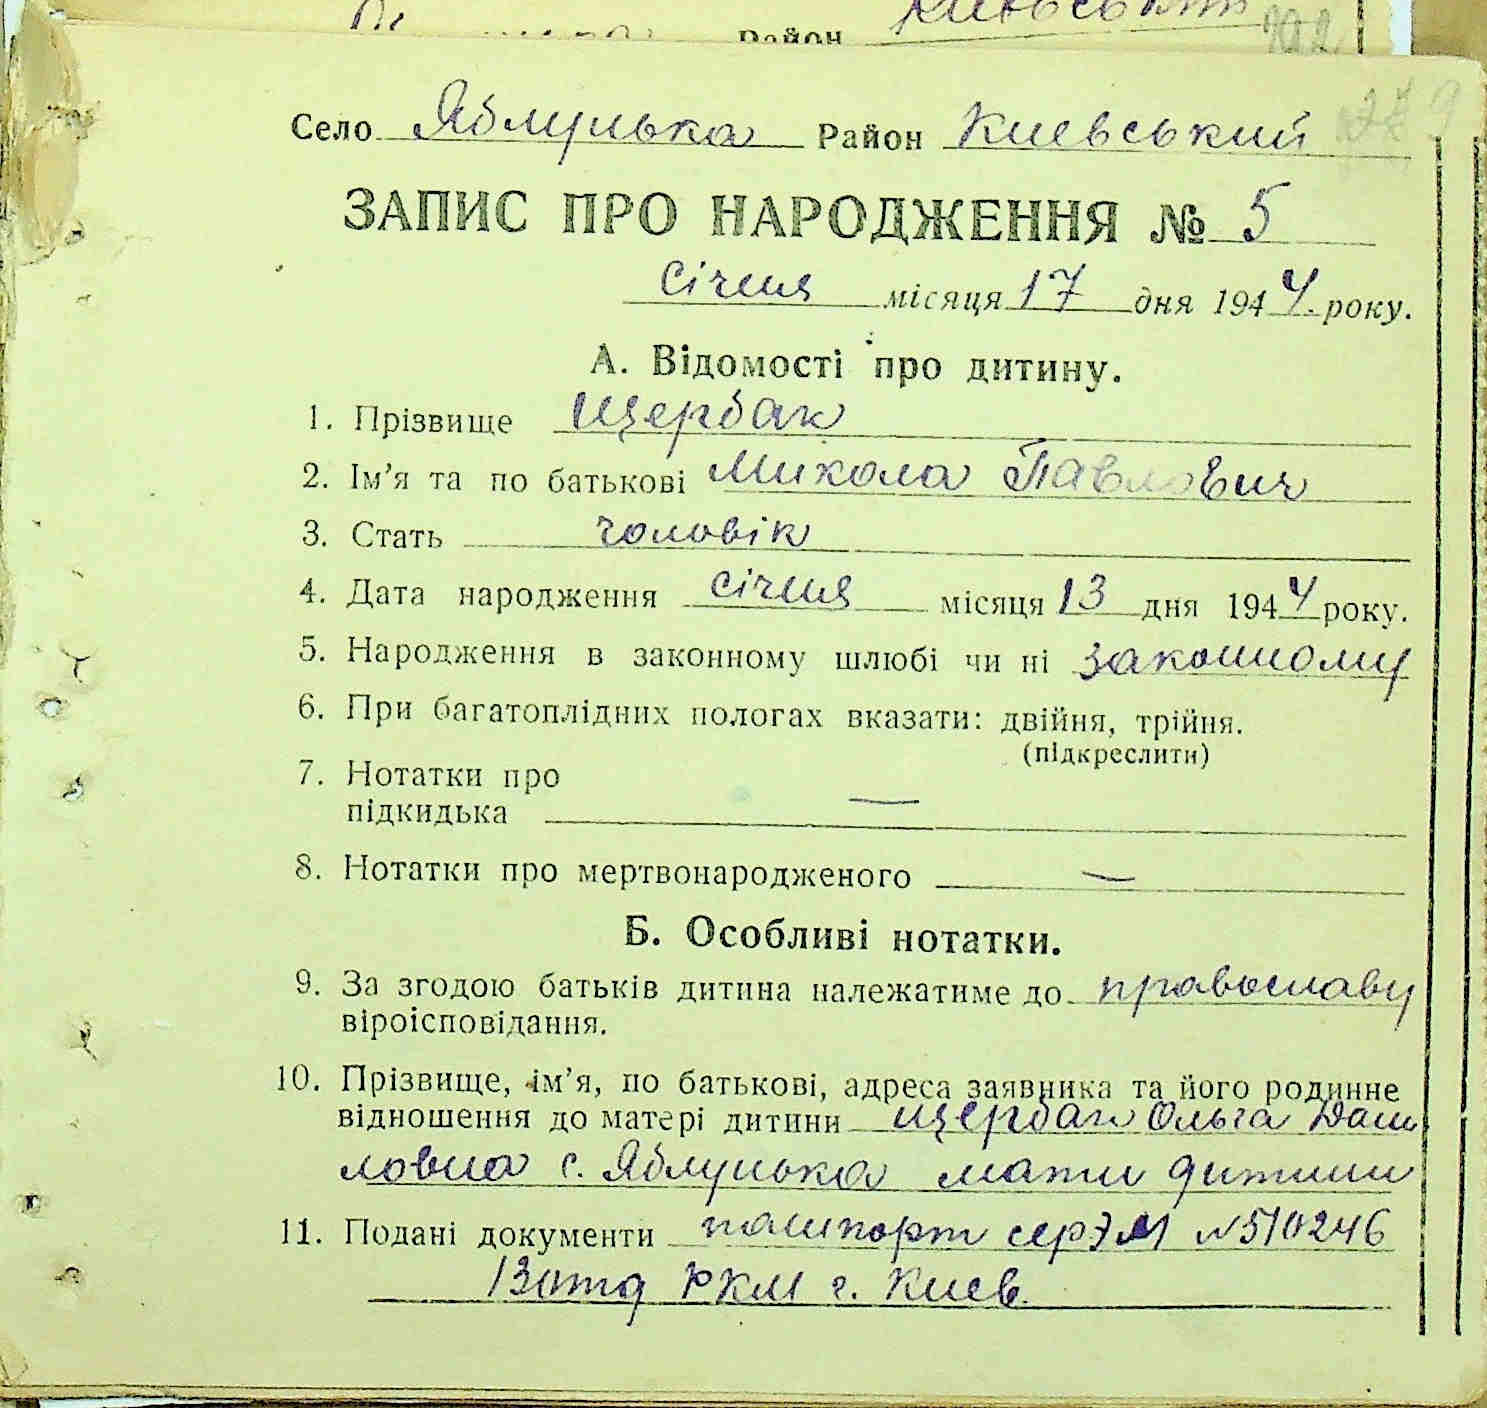 Район Київський
Село Яблунька Район Киевський
ЗАПИС ПРО НАРОДЖЕННЯ № 5
січня місяця 17 дня 1944. року.
А. Відомості про дитину.
1. Прізвище Щербак
2. Ім'я та по батькові Микола Павлович
3. Стать чоловік
4. Дата народження січня місяця 13 дня 1944 року.
5. Народження в законному шлюбі чи ні законному
6. При багатоплідних пологах вказати: двійня, трійня.
(підкреслити)
7. Нотатки про
підкидька —
8. Нотатки про мертвонародженого —
Б. Особливі нотатки.
9. За згодою батьків дитина належатиме до православу
віроісповідання.
10. Прізвище, ім'я, по батькові, адреса заявника та його родинне
відношення до матері дитини Щербак Ольга Дани
ловна с. Яблунька мати дитини
11. Подані документи пашпорт сер ЭМ №510246
13 отд РКМ г. Киев.